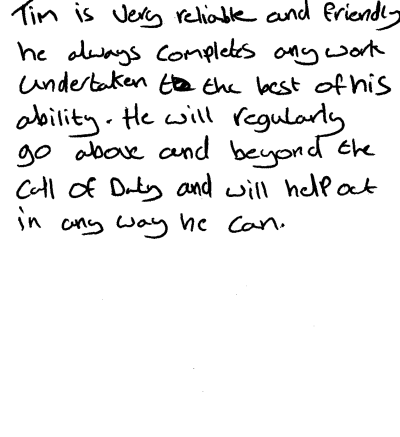 Tim is very reliable and friendly
he always completes any work
undertaken to the best of his
ability. He will regularly
go above and beyond the
Call of Duty and will help out
in any way he can.